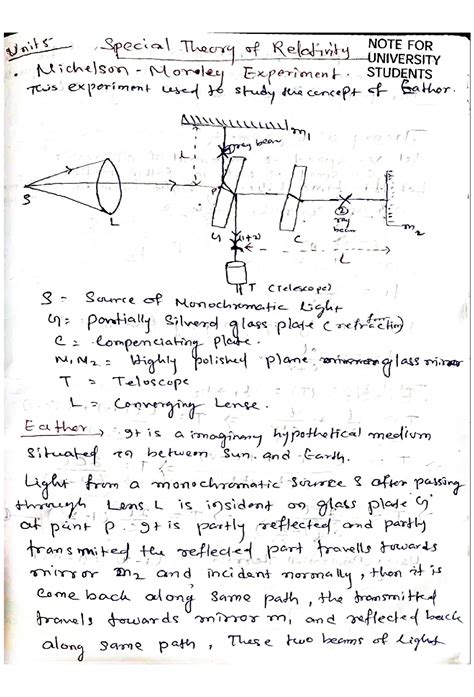 Unit 5 Special Theory of Relativity
NOTE FOR
UNIVERSITY
STUDENTS
. Michelson - Morley Experiment.
This experiment used to study the concept of Eather.
m1
① ray beam
L
P
S
L
G
(1+2)
C
②
ray
beam
m2
L
T (Telescope)
S = Source of Monochromatic Light
G = partially Silverd glass plate (
C = Compenciating Plate.
M1 M2 = Highly polished plane glass mirror
T = Teloscope
L = Converging Lense.
Eather → It is a imaginary hypothetical medium
Situated in between Sun and Earth.
Light from a monochromatic source S after passing
through Lens L is insident on glass plate 'G'
at point p. It is partly reflected and partly
transmited the reflected part travells towards
mirror m2 and incident normally, then it is
come back along same path, the transmitted
travels towards mirror m1 and reflected back
along same path, These two beams of light